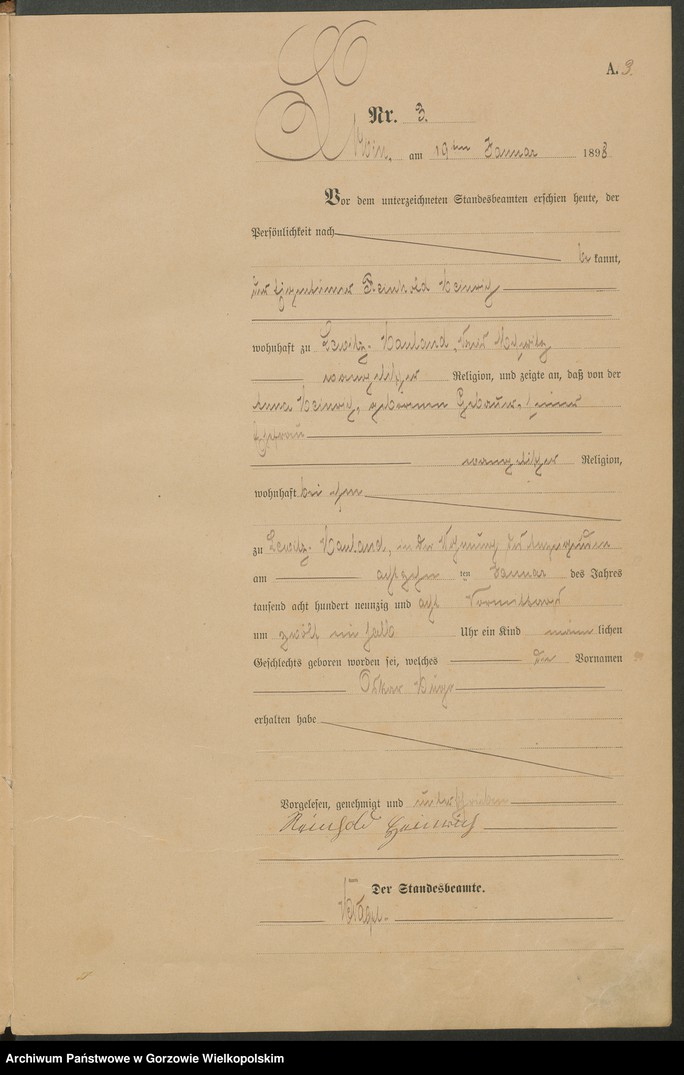 A. 3.
Nr. 3.
am 19ten Januar 1898
Vor dem unterzeichneten Standesbeamten erschien heute, der
Persönlichkeit nach
be kannt,
der Eigenthümer Reinhold Heinrich
wohnhaft zu Lewitz-Hauland, Kreis Meseritz
evangelischer Religion, und zeigte an, daß von der
Anna Heinrich, geborenen Gebauer, seiner
Ehefrau
evangelischer Religion,
wohnhaft bei ihm
zu Lewitz-Hauland, in der Wohnung des Anzeigenden
am achtzehn ten Januar des Jahres
tausend acht hundert neunzig und acht Vormittags
um zwölf ein halb Uhr ein Kind männ lichen
Geschlechts geboren worden sei, welches die Vornamen
Oskar Hugo
erhalten habe
Vorgelesen, genehmigt und unterschrieben
Reinhold Heinrich
Der Standesbeamte.
Archiwum Państwowe w Gorzowie Wielkopolskim